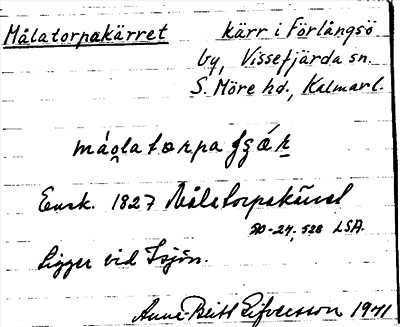 Målatorpakärret kärr i Förlångsö
by, Vissefjärda sn.
S. Möre hd., Kalmarl.
Ensk. 1827 Målatorpakärret
20-27, 528 LSA.
Ligger vid Isjön.
Anne-Britt Sifversson 1941